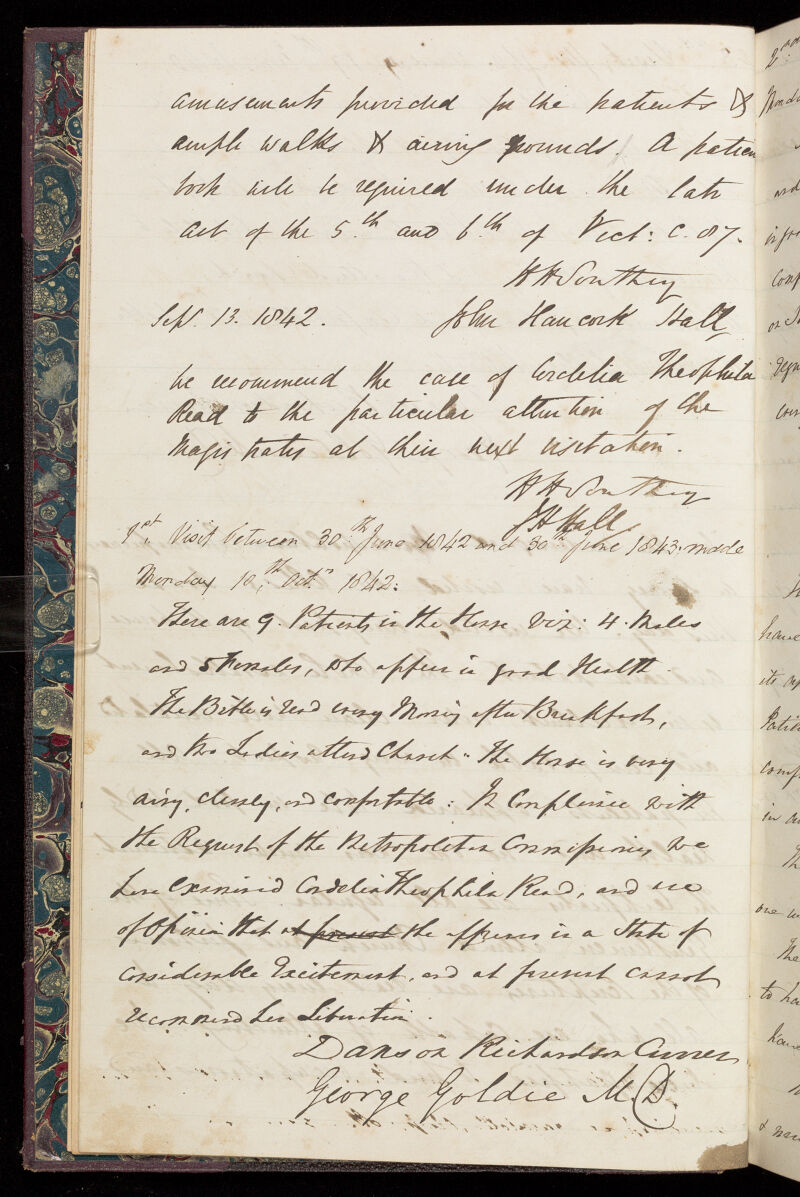 amusements provided for the patients &
ample walks & airing grounds. A patien
book will be required under the late
act of the 5th and 6th of Vict: c. 87.
H H Southey
Sept. 13. 1842. John Hancock Hall
We recommend the case of Cordelia Theophila
Read to the particular attention of the
Magistrates at their next visitation.
H H Southey
J H Hall
1st. Visit between 30th June 1842 and 30th June 1843: made
Monday 10th, Octr 1842:
There are 9. Patients in the House viz: 4. Males
and 5 Females, who appear in good Health.
The Bible is read every Morning after Breakfast,
and two Ladies attend Church. The House is very
airy, cleanly, and comfortable: In Compliance with
the Request of the Metropolitan Commissioners we
have Examined Cordelia Theophila Read, and are
of Opinion that at present she appears in a State of
considerable Excitement, and at present cannot
recommend her Liberation.
Danson Richardson Currer
George Goldie M.D.